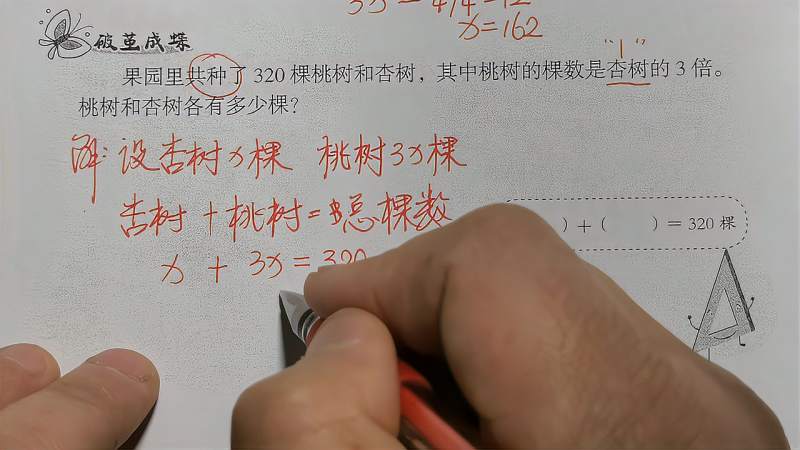 x=162
破茧成蝶
"1"
果园里共种了 320 棵桃树和杏树，其中桃树的棵数是杏树的 3 倍。
桃树和杏树各有多少棵？
解：设杏树x棵 桃树3x棵
杏树+桃树=总棵数
）+（ ）= 320 棵
x + 3x = 320